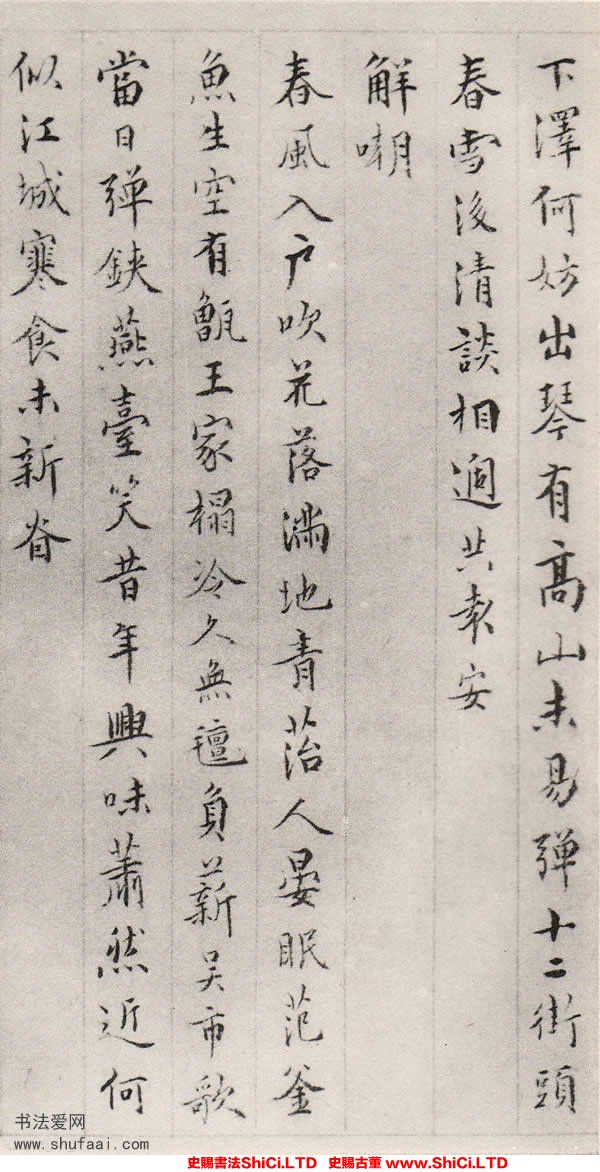 下澤何妨出琴有高山未易彈十二街頭
春雪後清談相過共袁安
解嘲
春風入户吹花落滿地青苔人晏眠范釜
魚生空有甑王家榻冷久無氊負薪吳市歌
當日彈鋏燕臺笑昔年興味蕭然近何
似江城寒食未新眷
书法爱网
www.shufaai.com
史賜書法ShiCi.LTD 史賜古董 www.ShiCi.LTD